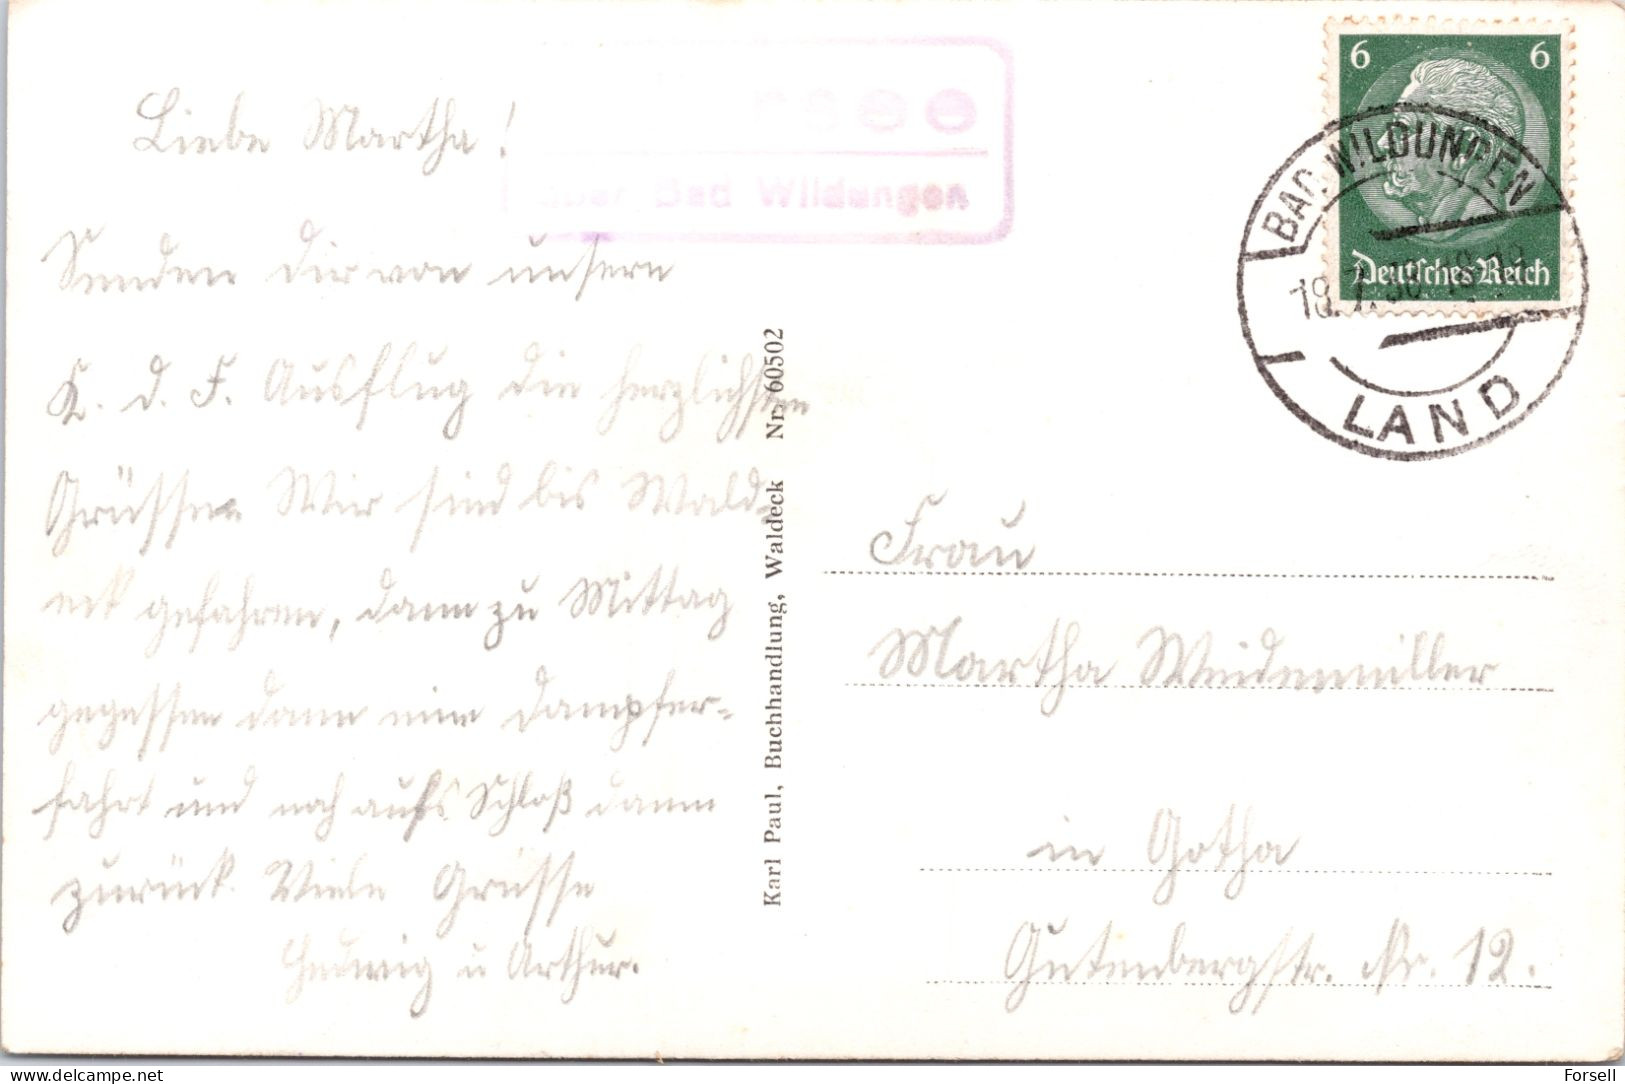 Liebe Martha!
Senden Dir von unsern
K. d. F. Ausflug die herzlichsten
Grüssen Wir sind bis Wald-
eck gefahren, dann zu Mittag
gegessen dann eine Dampfer-
fahrt und noch aufs Schloß dann
zurück. Viele Grüsse
Hedwig u Arthur.
über Bad Wildungen
Karl Paul, Buchhandlung, Waldeck Nr. 60502
6 6
Deutsches Reich
BAD WILDUNGEN
LAND
Frau
Martha Weidenmüller
in Gotha
Gutenbergstr. Nr. 12.
delcampe.net
Forsell